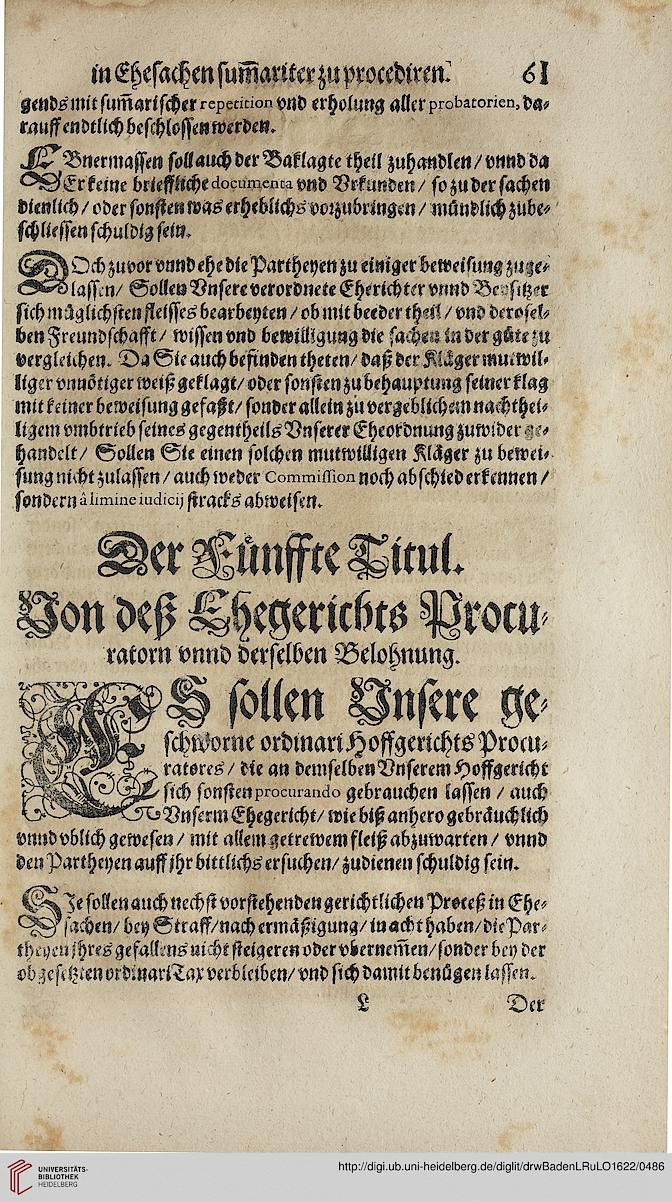 in Ehesachen sum̃ariter zu procediren. 61
gends mit sum̃arischer repetition vnd erholung aller probatorien, da-
rauff endtlich beschlossen werden.
EBnermassen soll auch der Baklagte theil zuhandlen / vnnd da
Er keine brieffliche documenta vnd Vrkunden / so zu der sachen
dienlich / oder sonsten was erheblichs vorzubringen / mündlich zube-
schliessen schuldig sein.
DOch zuvor vnnd ehe die Partheyen zu einiger beweisung zuge-
lassen / Sollen Vnsere verordnete Eherichter vnnd Beysitzer
sich müglichsten fleisses bearbeyten / ob mit beeder theil / vnd derosel-
ben Freundschafft / wissen vnd bewilligung die sachen in der güte zu
vergleichen. Da Sie auch befinden theten / daß der Kläger mutwil-
liger vnnötiger weiß geklagt / oder sonsten zu behauptung seiner klag
mit keiner beweisung gefaßt / sonder allein zu vergeblichem nachthei-
ligem vmbtrieb seines gegentheils Vnserer Eheordnung zuwider ge-
handelt / Sollen Sie einen solchen mutwilligen Kläger zu bewei-
sung nicht zulassen / auch weder Commission noch abschied erkennen /
sondern â limine iudicij stracks abweisen.
Der Fünffte Titul.
Von deß Ehegerichts Procu-
ratorn vnnd derselben Belohnung.
ES sollen Vnsere ge-
schworne ordinari Hoffgerichts Procu-
ratores / die an demselben Vnserem Hoffgericht
sich sonsten procurando gebrauchen lassen / auch
Vnserm Ehegericht / wie biß anhero gebräuchlich
vnnd vblich gewesen / mit allem getrewem fleiß abzuwarten / vnnd
den Partheyen auff jhr bittlichs ersuchen / zudienen schuldig sein.
SJe sollen auch nechst vorstehenden gerichtlichen Proceß in Ehe-
sachen / bey Straff / nach ermäßigung / in acht haben / die Par-
theyen jhres gefallens nicht steigeren oder vbernem̃en / sonder bey der
obgesetzten ordinari Tax verbleiben / vnd sich damit benügen lassen.
L Der
UNIVERSITÄTS-
BIBLIOTHEK
HEIDELBERG
http://digi.ub.uni-heidelberg.de/diglit/drwBadenLRuLO1622/0486